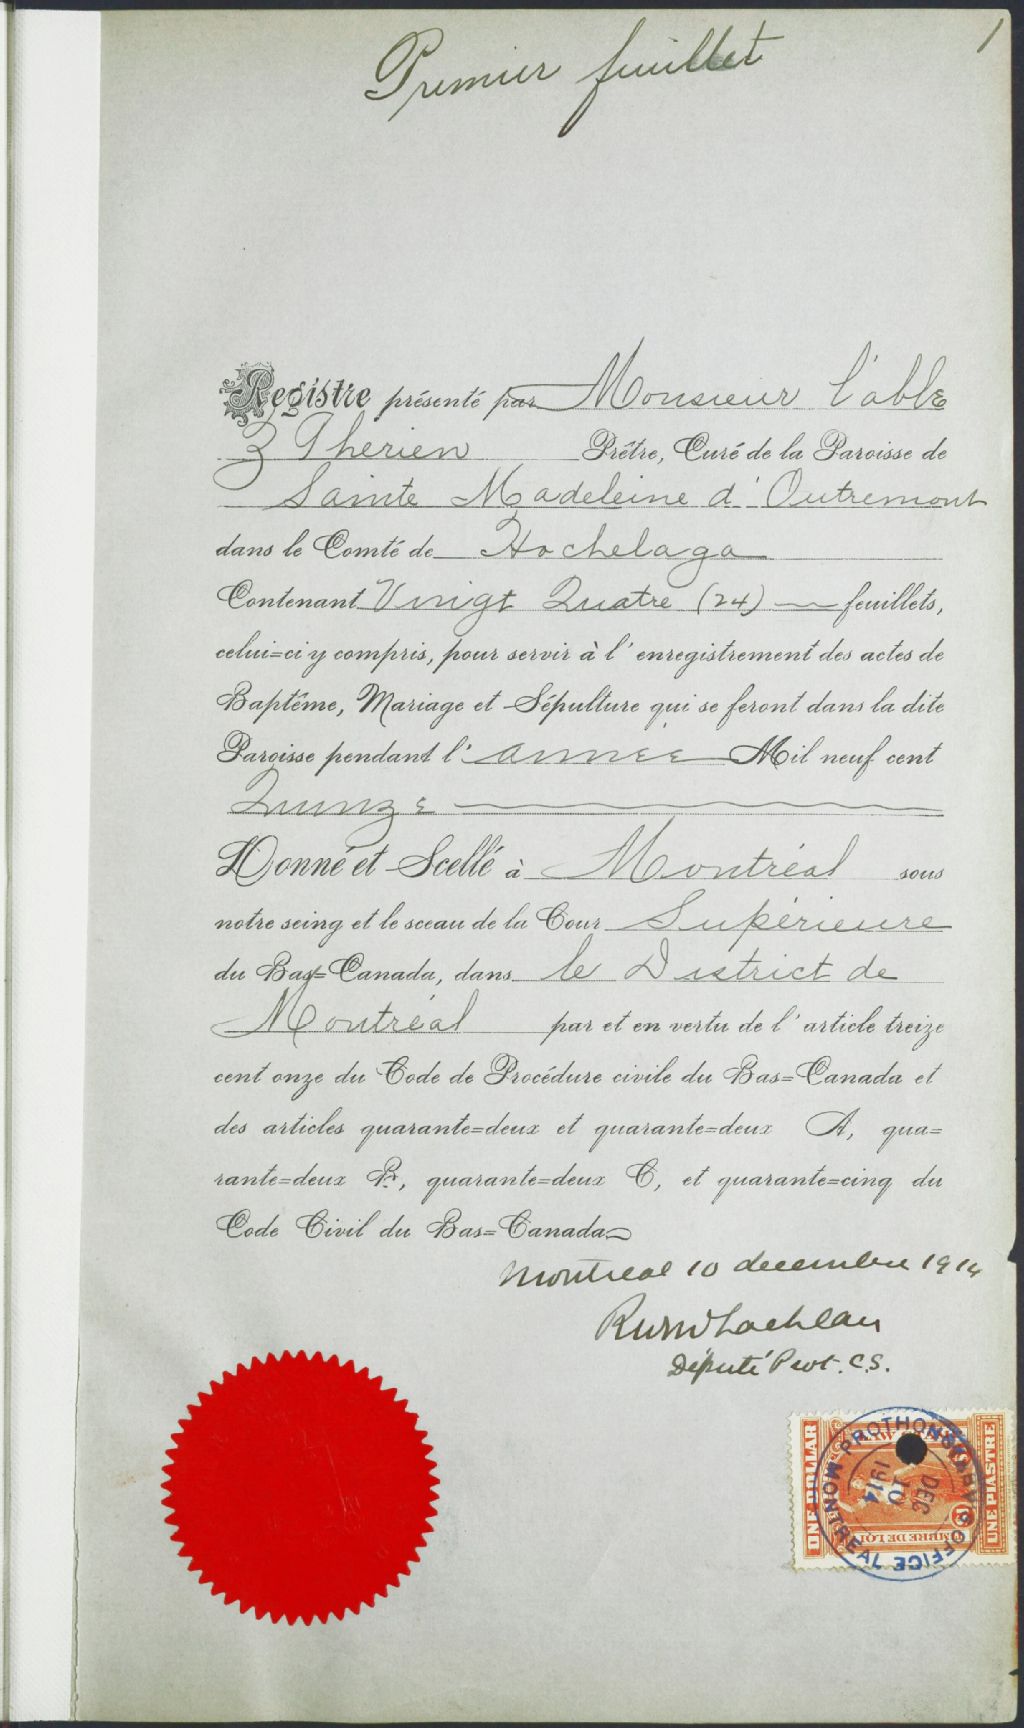 1
Premier feuillet
Registre présenté par Monsieur l'abbe
Z Therien Prêtre, Curé de la Paroisse de
Sainte Madeleine d'Outremont
dans le Comté de Hochelaga
Contenant Vingt Quatre (24) feuillets,
celui=ci y compris, pour servir à l'enregistrement des actes de
Baptême, Mariage et Sépulture qui se feront dans la dite
Paroisse pendant l'année Mil neuf cent
Quinze
Donné et Scellé à Montréal sous
notre seing et le sceau de la Cour Supérieure
du Bas=Canada, dans le District de
Montréal par et en vertu de l'article treize
cent onze du Code de Procédure civile du Bas=Canada et
des articles quarante=deux et quarante=deux A, qua=
rante=deux B, quarante=deux C, et quarante=cinq du
Code Civil du Bas=Canada
Montreal 10 decembre 1914
Député Prot. C.S.
ONE DOLLAR
LAW
TIMBRE DE LOI
UNE PIASTRE
PROTHONOTARY'S OFFICE
MONTREAL
DEC
10
1914